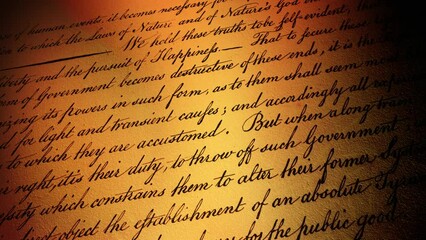 of human events, it becomes necessary for
to which the Laws of Nature and of Nature's God
We hold these truths to be self-evident, that
iberty and the pursuit of Happiness.— That to secure these
of Government becomes destructive of these ends, it is the
izing its powers in such form, as to them shall seem
for light and transient causes; and accordingly all
to which they are accustomed. But when a long train
right, it is their duty, to throw off such Government
essity which constrains them to alter their former Sy
object the establishment of an absolute Ty
for the public good